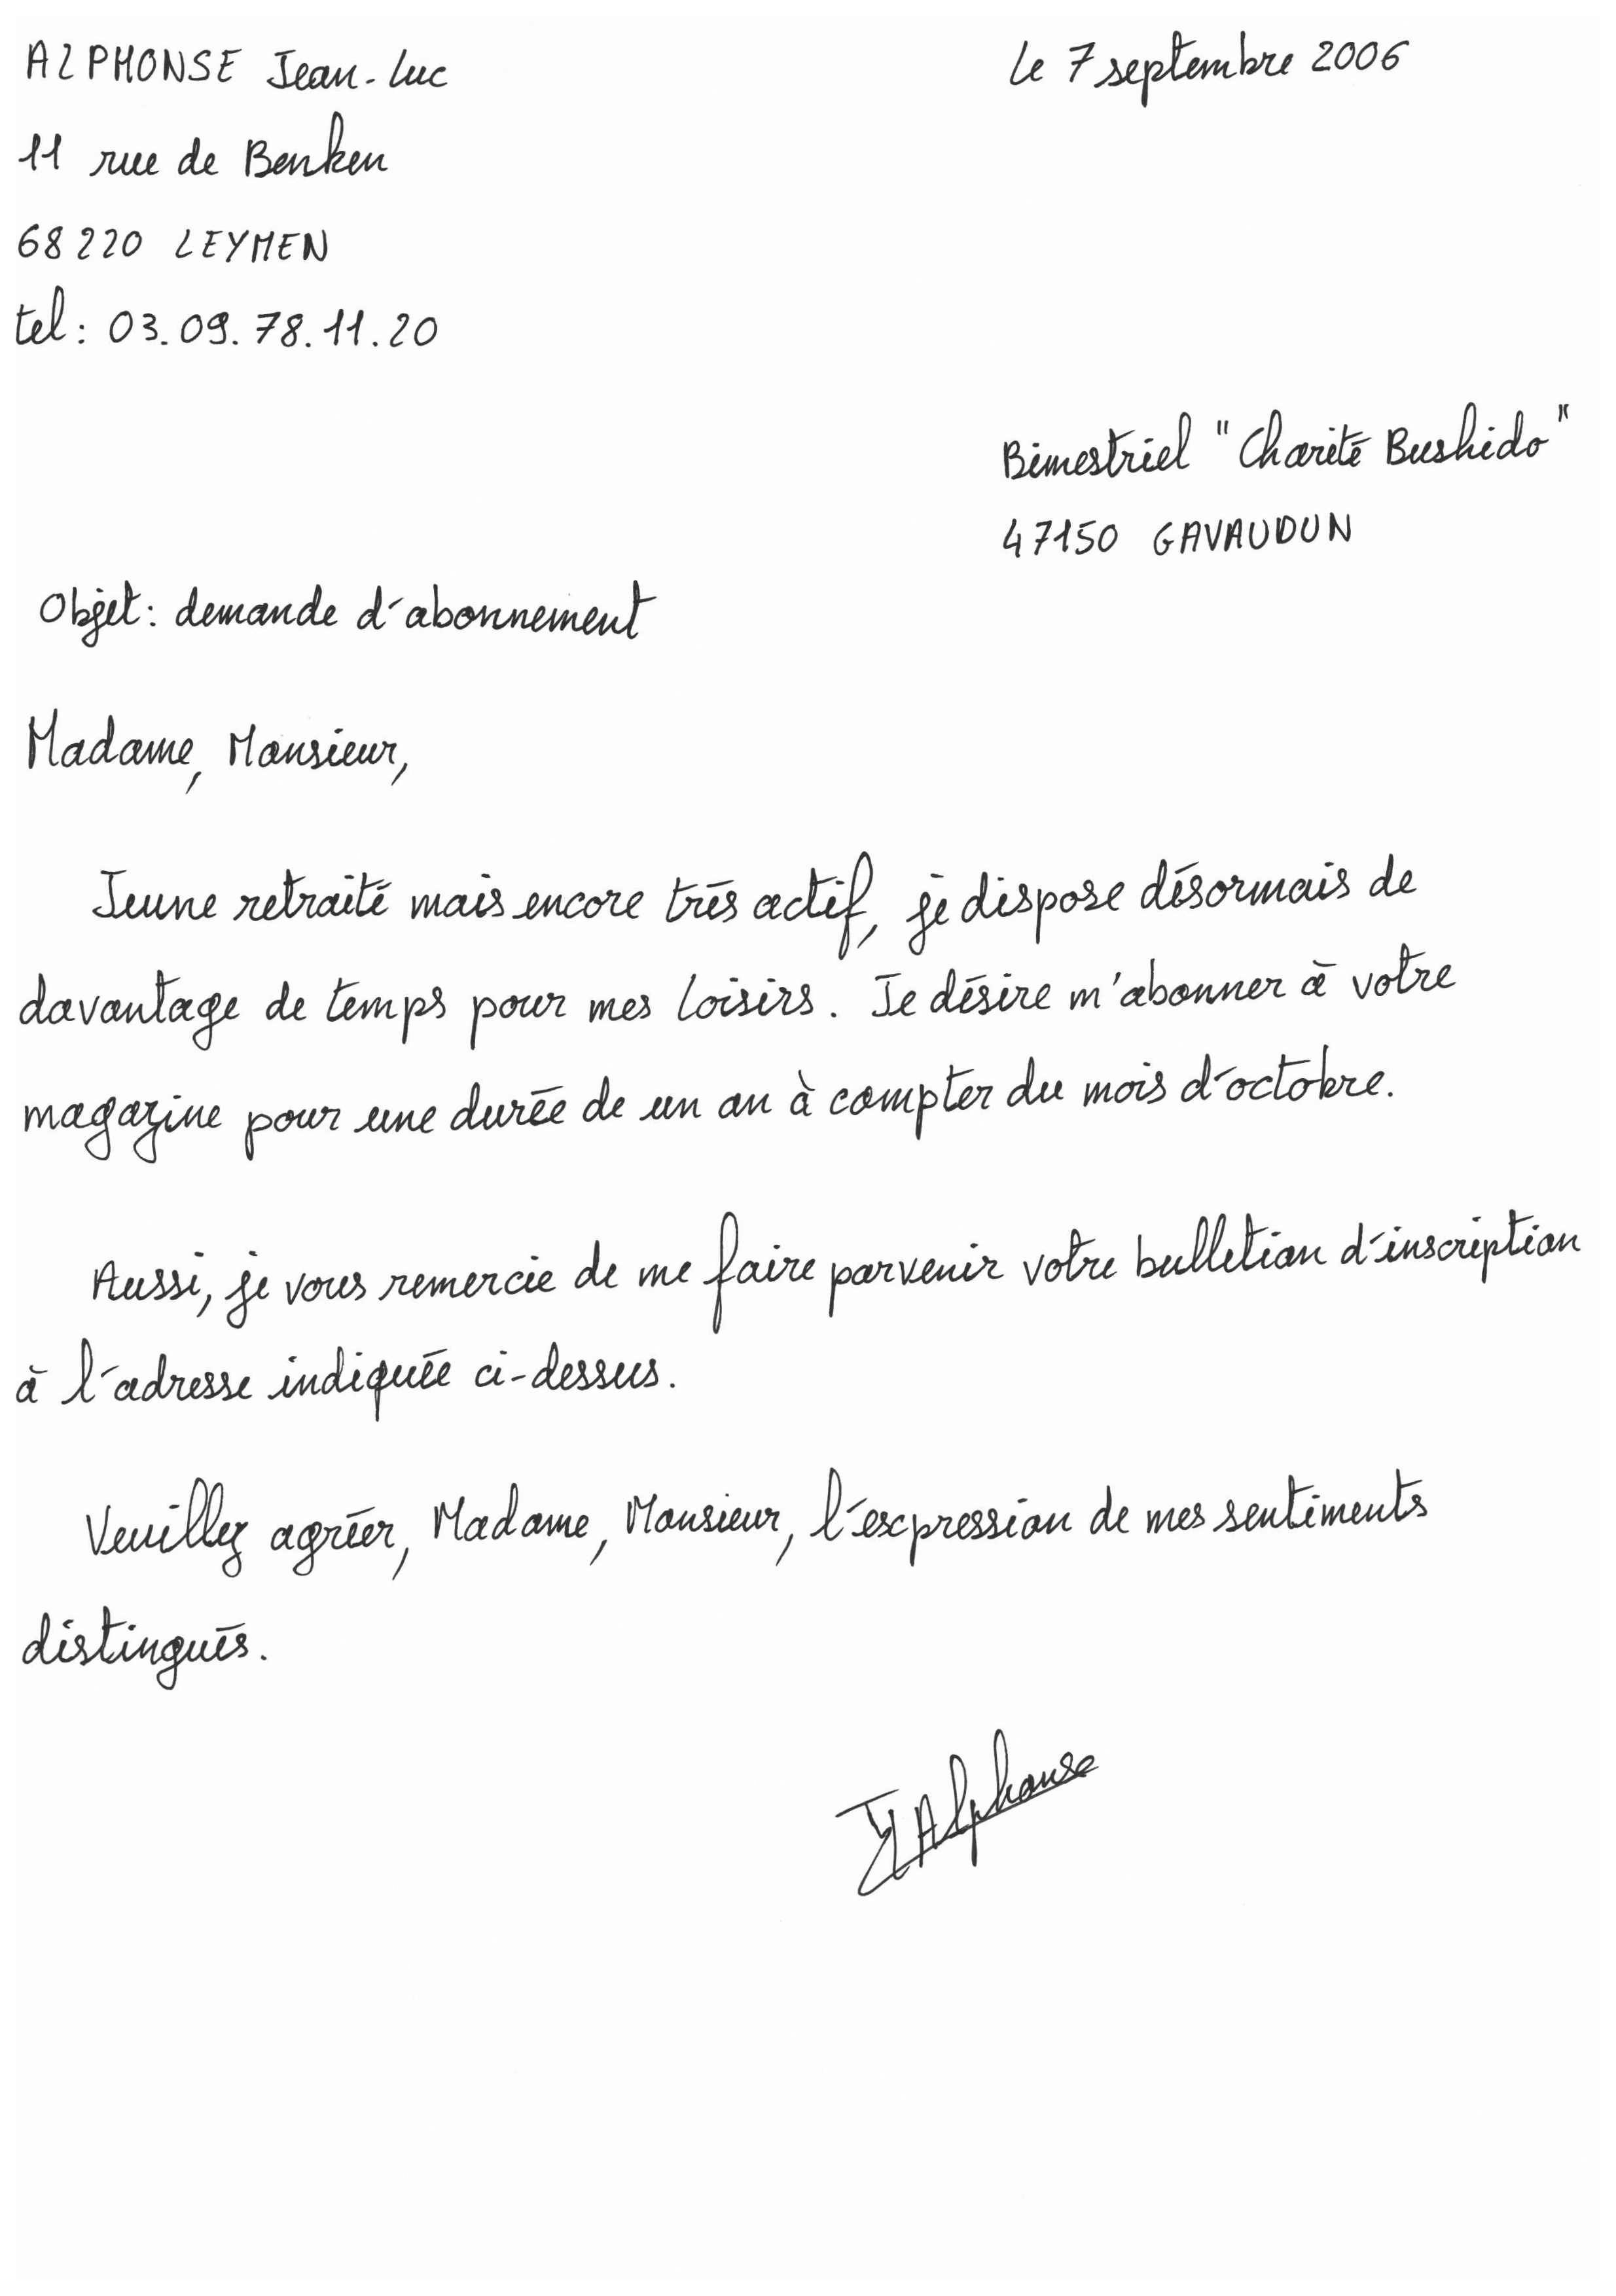 ALPHONSE Jean-Luc
le 7 septembre 2006
11 rue de Benken
68220 LEYMEN
tel : 03.09.78.11.20
Bimestriel "Charité Bushido"
47150 GAVAUDUN
Objet : demande d'abonnement
Madame, Monsieur,
Jeune retraité mais encore très actif, je dispose désormais de
davantage de temps pour mes loisirs. Je désire m'abonner à votre
magazine pour une durée de un an à compter du mois d'octobre.
Aussi, je vous remercie de me faire parvenir votre bulletian d'inscription
à l'adresse indiquée ci-dessus.
Veuillez agréer, Madame, Monsieur, l'expression de mes sentiments
distingués.
JLAlphonse